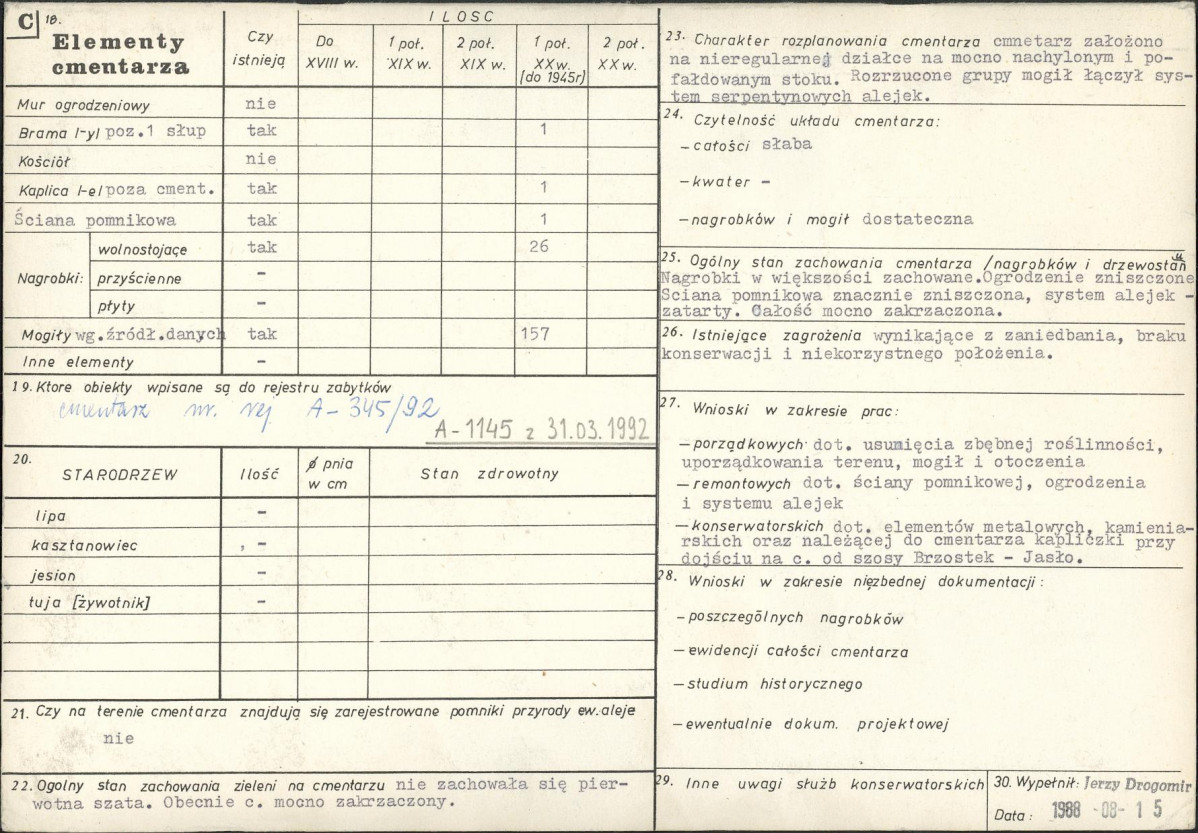 C 18.
Elementy
cmentarza
Czy
istnieją
ILOSC
Do
XVIII w.
1 poł.
XIX w.
2 poł.
XIX w.
1 poł.
XX w.
(do 1945r)
2 poł.
XX w.
Mur ogrodzeniowy nie
Brama /-y/ poz.1 słup tak 1
Kościół nie
Kaplica /-e/ poza cment. tak 1
Ściana pomnikowa tak 1
Nagrobki: wolnostojące tak 26
przyścienne -
płyty -
Mogiły wg.źródł.danych tak 157
Inne elementy -
19. Ktore obiekty wpisane są do rejestru zabytków
cmentarz nr. rej A-345/92
A-1145 z 31.03.1992
20.
STARODRZEW Ilość ϕ pnia
w cm Stan zdrowotny
lipa -
kasztanowiec , -
jesion -
tuja [żywotnik] -
21. Czy na terenie cmentarza znajdują się zarejestrowane pomniki przyrody ew. aleje
nie
22. Ogolny stan zachowania zieleni na cmentarzu nie zachowała się pier-
wotna szata. Obecnie c. mocno zakrzaczony.
23. Charakter rozplanowania cmentarza cmnetarz założono
na nieregularnej działce na mocno nachylonym i po-
fałdowanym stoku. Rozrzucone grupy mogił łączył sys-
tem serpentynowych alejek.
24. Czytelność układu cmentarza:
- całości słaba
- kwater -
- nagrobków i mogił dostateczna
25. Ogólny stan zachowania cmentarza /nagrobków i drzewostanu
Nagrobki w większości zachowane.Ogrodzenie zniszczone
Sciana pomnikowa znacznie zniszczona, system alejek -
zatarty. Całość mocno zakrzaczona.
26. Istniejące zagrożenia wynikające z zaniedbania, braku
konserwacji i niekorzystnego położenia.
27. Wnioski w zakresie prac:
- porządkowych dot. usumięcia zbębnej roślinności,
uporządkowania terenu, mogił i otoczenia
- remontowych dot. ściany pomnikowej, ogrodzenia
i systemu alejek
- konserwatorskich dot. elementów metalowych, kamienia-
rskich oraz należącej do cmentarza kapliczki przy
dojściu na c. od szosy Brzostek - Jasło.
28. Wnioski w zakresie niezbednej dokumentacji:
- poszczególnych nagrobków
- ewidencji całości cmentarza
- studium historycznego
- ewentualnie dokum. projektowej
29. Inne uwagi służb konserwatorskich
30. Wypełnił: Jerzy Drogomir
Data: 1988 -08- 15